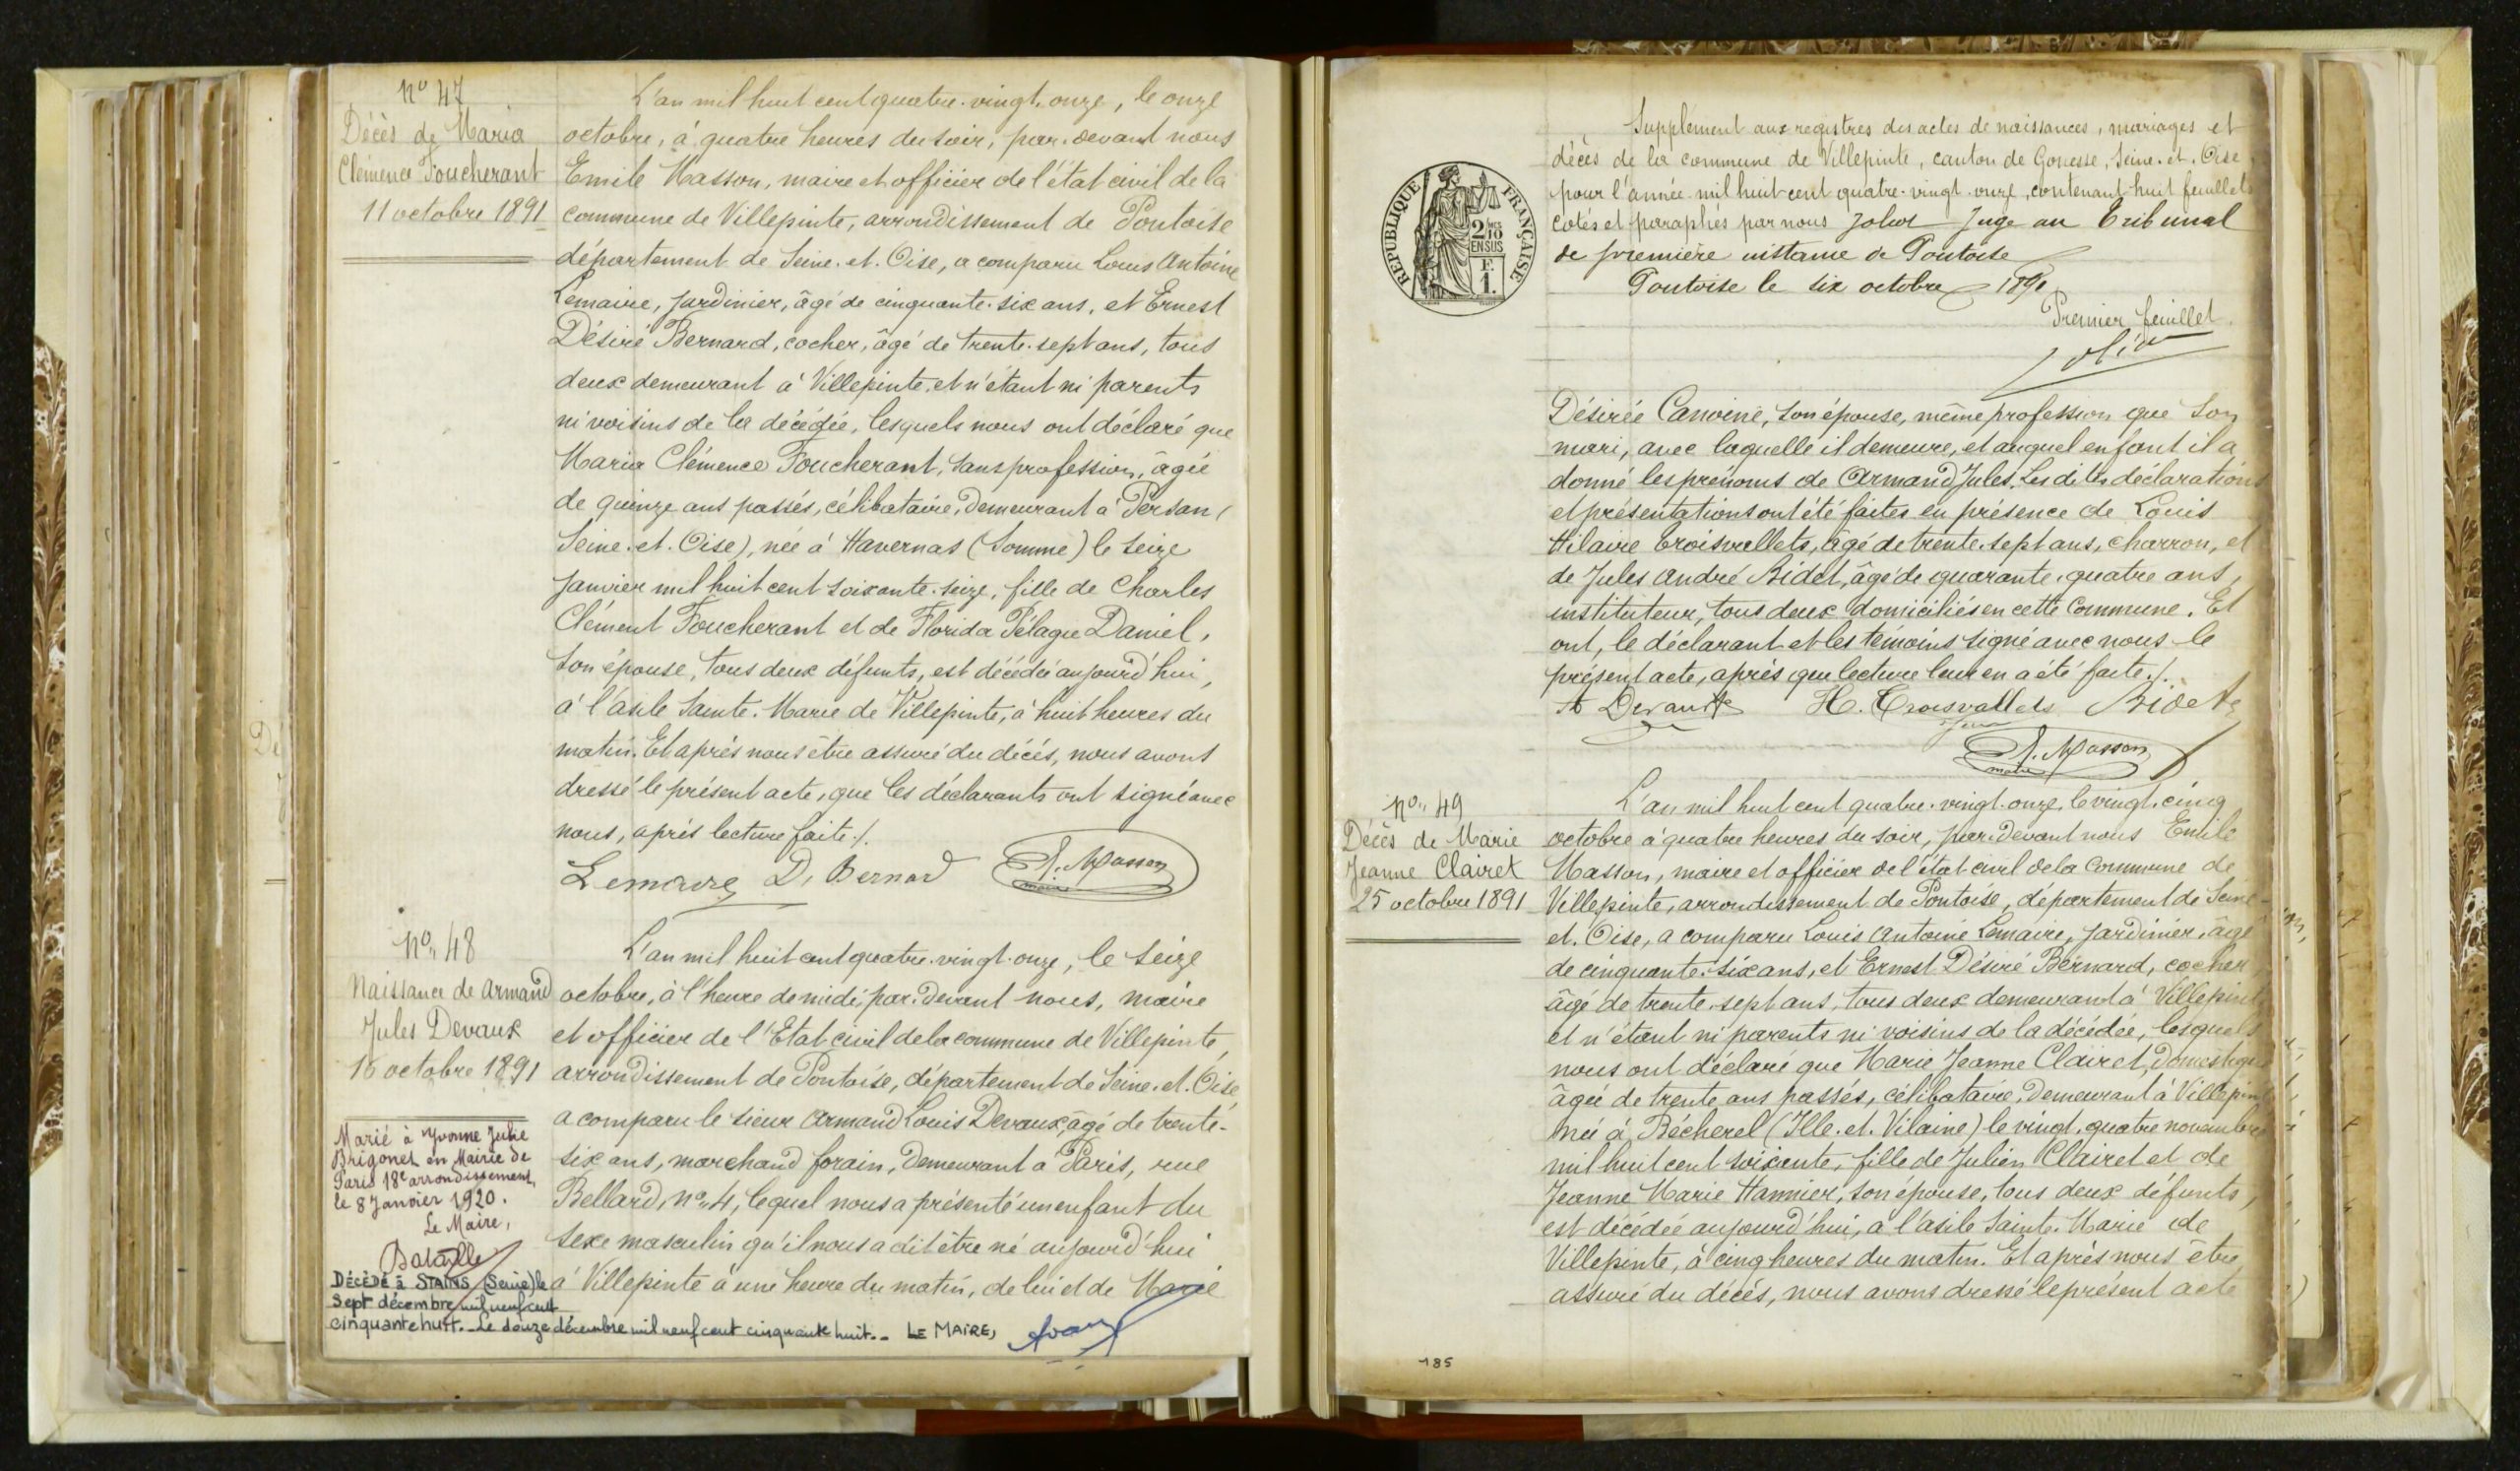 No 47
Décès de Maria
Clémence Foucherant
11 octobre 1891
L'an mil huit cent quatre-vingt-onze, le onze
octobre, à quatre heures du soir, par-devant nous
Emile Masson, maire et officier de l'état civil de la
commune de Villepinte, arrondissement de Pontoise
département de Seine-et-Oise, a comparu Louis Antoine
Lemaire, jardinier, âgé de cinquante-six ans, et Ernest
Désiré Bernard, cocher, âgé de trente-sept ans, tous
deux demeurant à Villepinte, et n'étant ni parents
ni voisins de la décédée, lesquels nous ont déclaré que
Maria Clémence Foucherant, sans profession, âgée
de quinze ans passés, célibataire, demeurant à Persan (
Seine-et-Oise), née à Havernas (Somme) le seize
janvier mil huit cent soixante-seize, fille de Charles
Clément Foucherant et de Florida Pélagie Daniel,
son épouse, tous deux défunts, est décédée aujourd'hui,
à l'asile Sainte-Marie de Villepinte, à huit heures du
matin. Et après nous être assuré du décès, nous avons
dressé le présent acte, que les déclarants ont signé avec
nous, après lecture faite./.
Lemaire D. Bernard E. Masson
maire
No 48
Naissance de Armand
Jules Devaux
16 octobre 1891
L'an mil huit cent quatre-vingt-onze, le seize
octobre, à l'heure de midi, par-devant nous, maire
et officier de l'Etat civil de la commune de Villepinte,
arrondissement de Pontoise, département de Seine-et-Oise,
a comparu le sieur Armand Louis Devaux, âgé de trente-
six ans, marchand forain, demeurant à Paris, rue
Bellard, no 4, lequel nous a présenté un enfant du
sexe masculin qu'il nous a dit être né aujourd'hui
à Villepinte à une heure du matin, de lui et de Marie
Marié à Yvonne Julie
Brigonet en Mairie de
Paris 18e arrondissement,
le 8 Janvier 1920.
Le Maire,
Bataille
DÉCÉDÉ à STAINS (Seine) le
Sept décembre mil neuf cent
cinquante huit._ Le douze décembre mil neuf cent cinquante huit._ LE MAIRE,
RÉPUBLIQUE FRANÇAISE
2/10
EN SUS
F.
1.
Supplément aux registres des actes de naissances, mariages et
décès de la commune de Villepinte, canton de Gonesse, Seine-et-Oise
pour l'année mil huit cent quatre-vingt-onze, contenant huit feuillets
cotés et paraphés par nous Juge au Tribunal
de première instance de Pontoise
Pontoise le six octobre 1891
Premier feuillet
Désirée Canoine, son épouse, même profession que son
mari, avec laquelle il demeure, et auquel enfant il a
donné les prénoms de Armand Jules. Les dites déclarations
et présentation ont été faites en présence de Louis
Hilaire Croisvallets, âgé de trente-sept ans, charron, et
de Jules André Bidet, âgé de quarante-quatre ans,
instituteur, tous deux domiciliés en cette commune. Et
ont, le déclarant et les témoins signé avec nous le
présent acte, après que lecture leur en a été faite./.
A Devaux H. Croisvallets Bidet
E. Masson
maire
No 49
Décès de Marie
Jeanne Clairet
25 octobre 1891
L'an mil huit cent quatre-vingt-onze, le vingt-cinq
octobre à quatre heures du soir, par-devant nous Emile
Masson, maire et officier de l'état civil de la commune de
Villepinte, arrondissement de Pontoise, département de Seine-
et-Oise, a comparu Louis Antoine Lemaire, jardinier, âgé
de cinquante-six ans, et Ernest Désiré Bernard, cocher,
âgé de trente-sept ans, tous deux demeurant à Villepinte
et n'étant ni parents ni voisins de la décédée, lesquels
nous ont déclaré que Marie Jeanne Clairet, domestique
âgée de trente ans passés, célibataire, demeurant à Villepinte
née à Bécherel (Ille-et-Vilaine) le vingt-quatre novembre
mil huit cent soixante, fille de Julien Clairet et de
Jeanne Marie Hannier, son épouse, tous deux défunts,
est décédée aujourd'hui, à l'asile Sainte-Marie de
Villepinte, à cinq heures du matin. Et après nous être
assuré du décès, nous avons dressé le présent acte
185